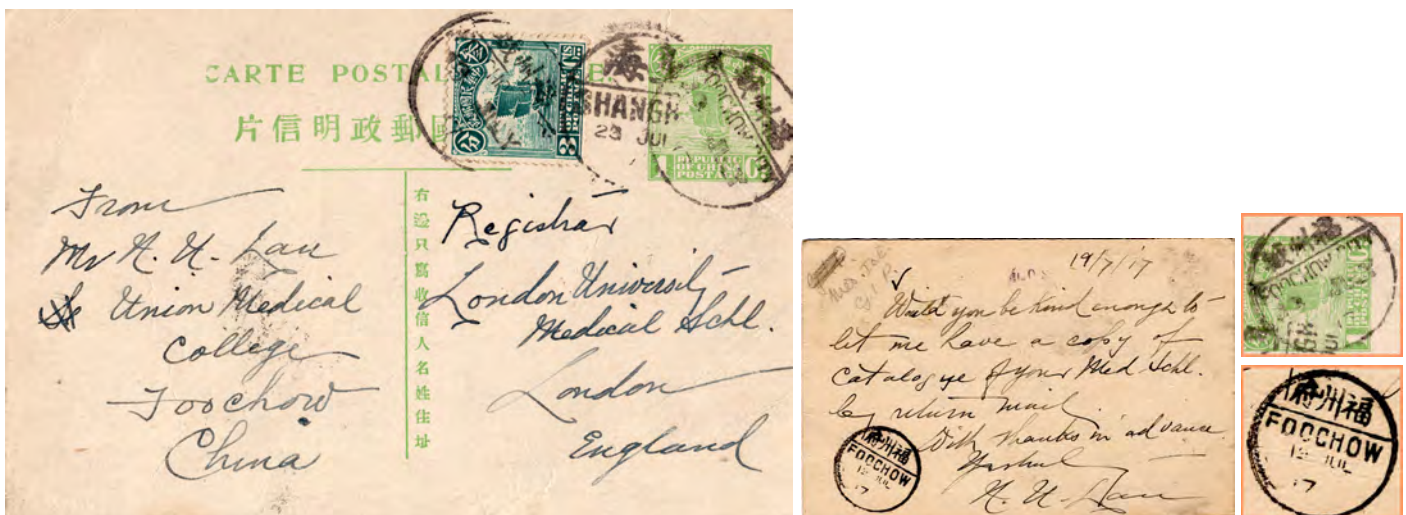 CARTE POSTALE
片信明政郵
SHANGH
29 JUL
REPUBLIC
OF CHINA
POSTAGE
右邊只寫收信人名姓住址
From
Mr H. U. Lau
Union Medical
College
Foochow
China
Registrar
London University
Medical Schl.
London
England
19/7/17
Would you be kind enough to
let me have a copy of
catalogue of your Med Schl.
by return mail.
With thanks in advance.
H. U. Lau
府州福
FOOCHOW
JUL
17
FOOCHOW
府州福
FOOCHOW
JUL
17